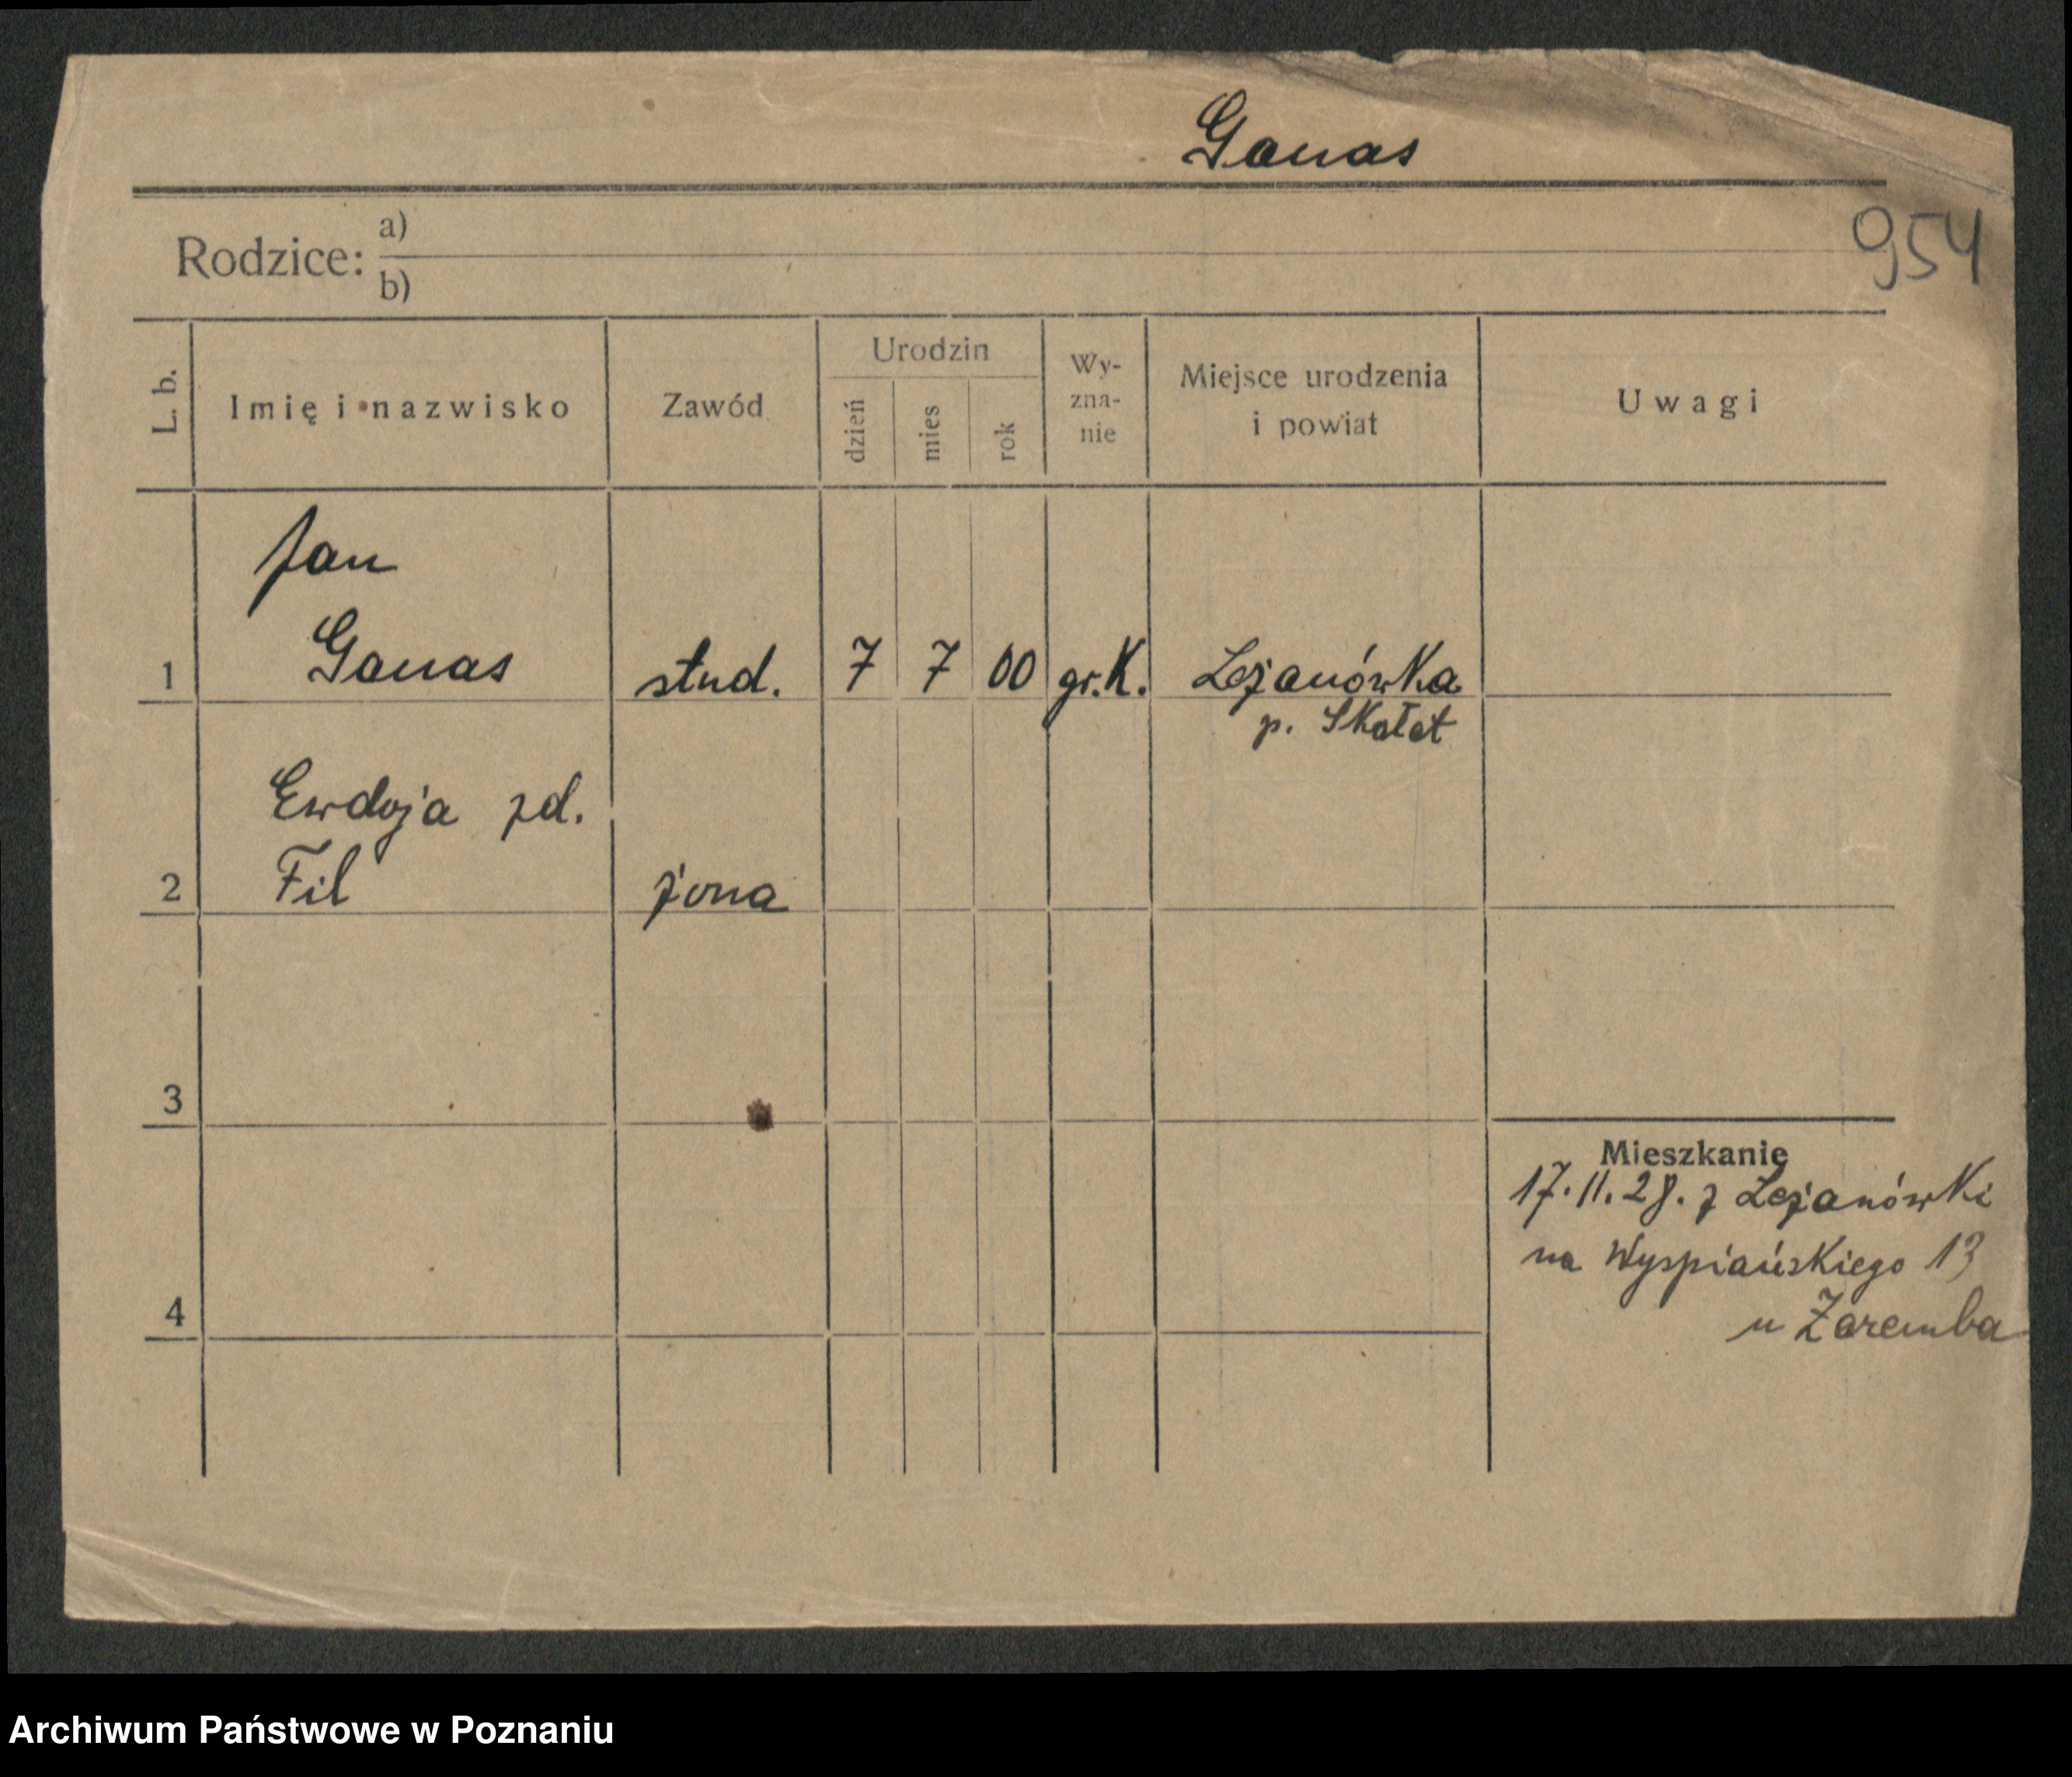 Ganas
954
Rodzice: a)
b)
L. b. Imię i nazwisko Zawód Urodzin dzień mies rok Wy-zna-nie Miejsce urodzenia i powiat Uwagi
Jan
1 Ganas stud. 7 7 00 gr.K. Leżanówka
p. Skałat
Ewdoja zd.
2 Fil żona
3
Mieszkanie
17.11.28. z Leżanówki
na Wyspiańskiego 13
4
u Zaremba
Archiwum Państwowe w Poznaniu